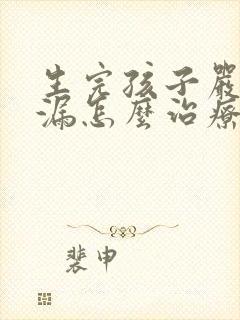 生完孩子嚴
漏怎麼治療
裴申